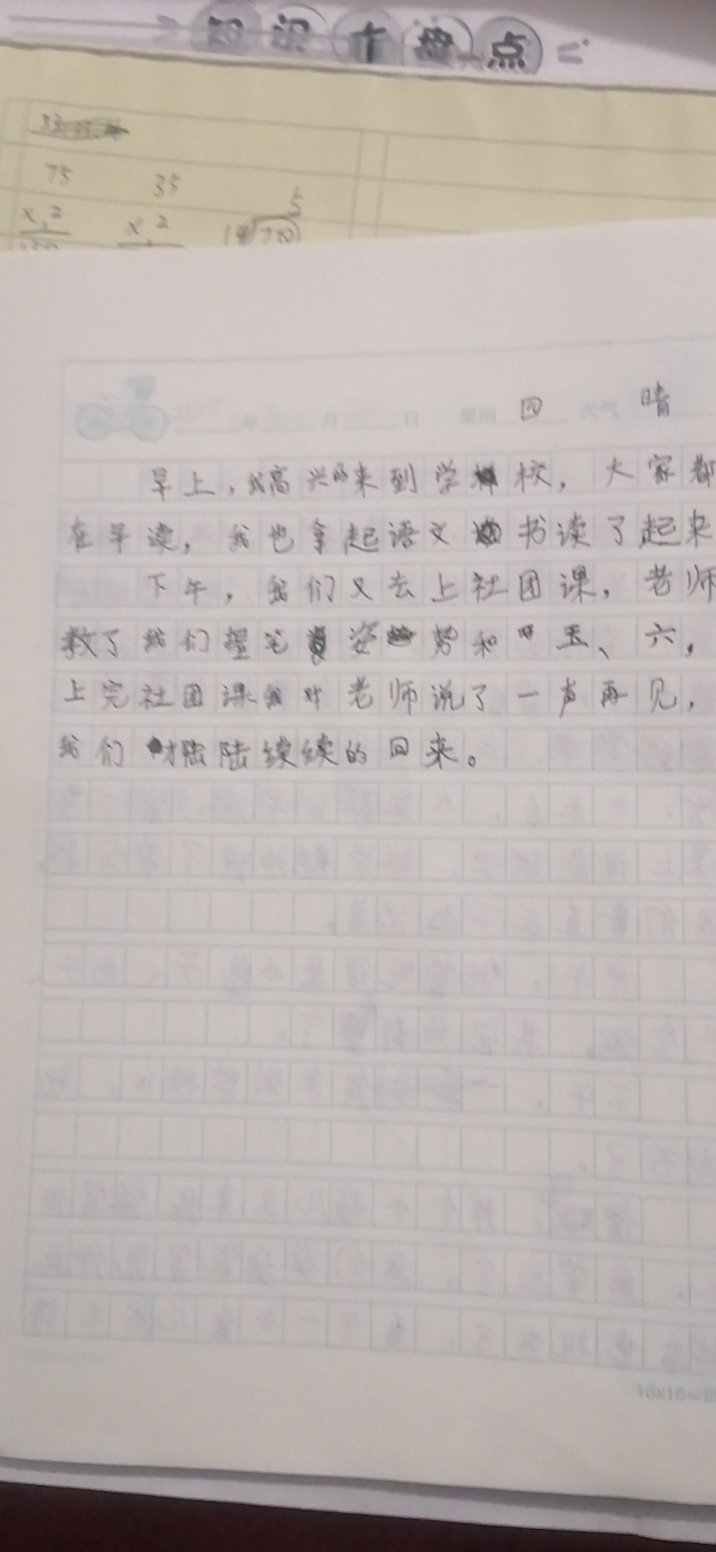 知识大盘点
75 35 5
x 2 x 2 70
年 月 日 星期 四 天气 晴
早上，我高兴的来到学校，大家都
在早读，我也拿起语文书读了起来
下午，我们又去上社团课，老师
教了我们握笔姿势和 五、六，
上完社团课我对老师说了一声再见，
我们才陆陆续续的回来。
16x16=2